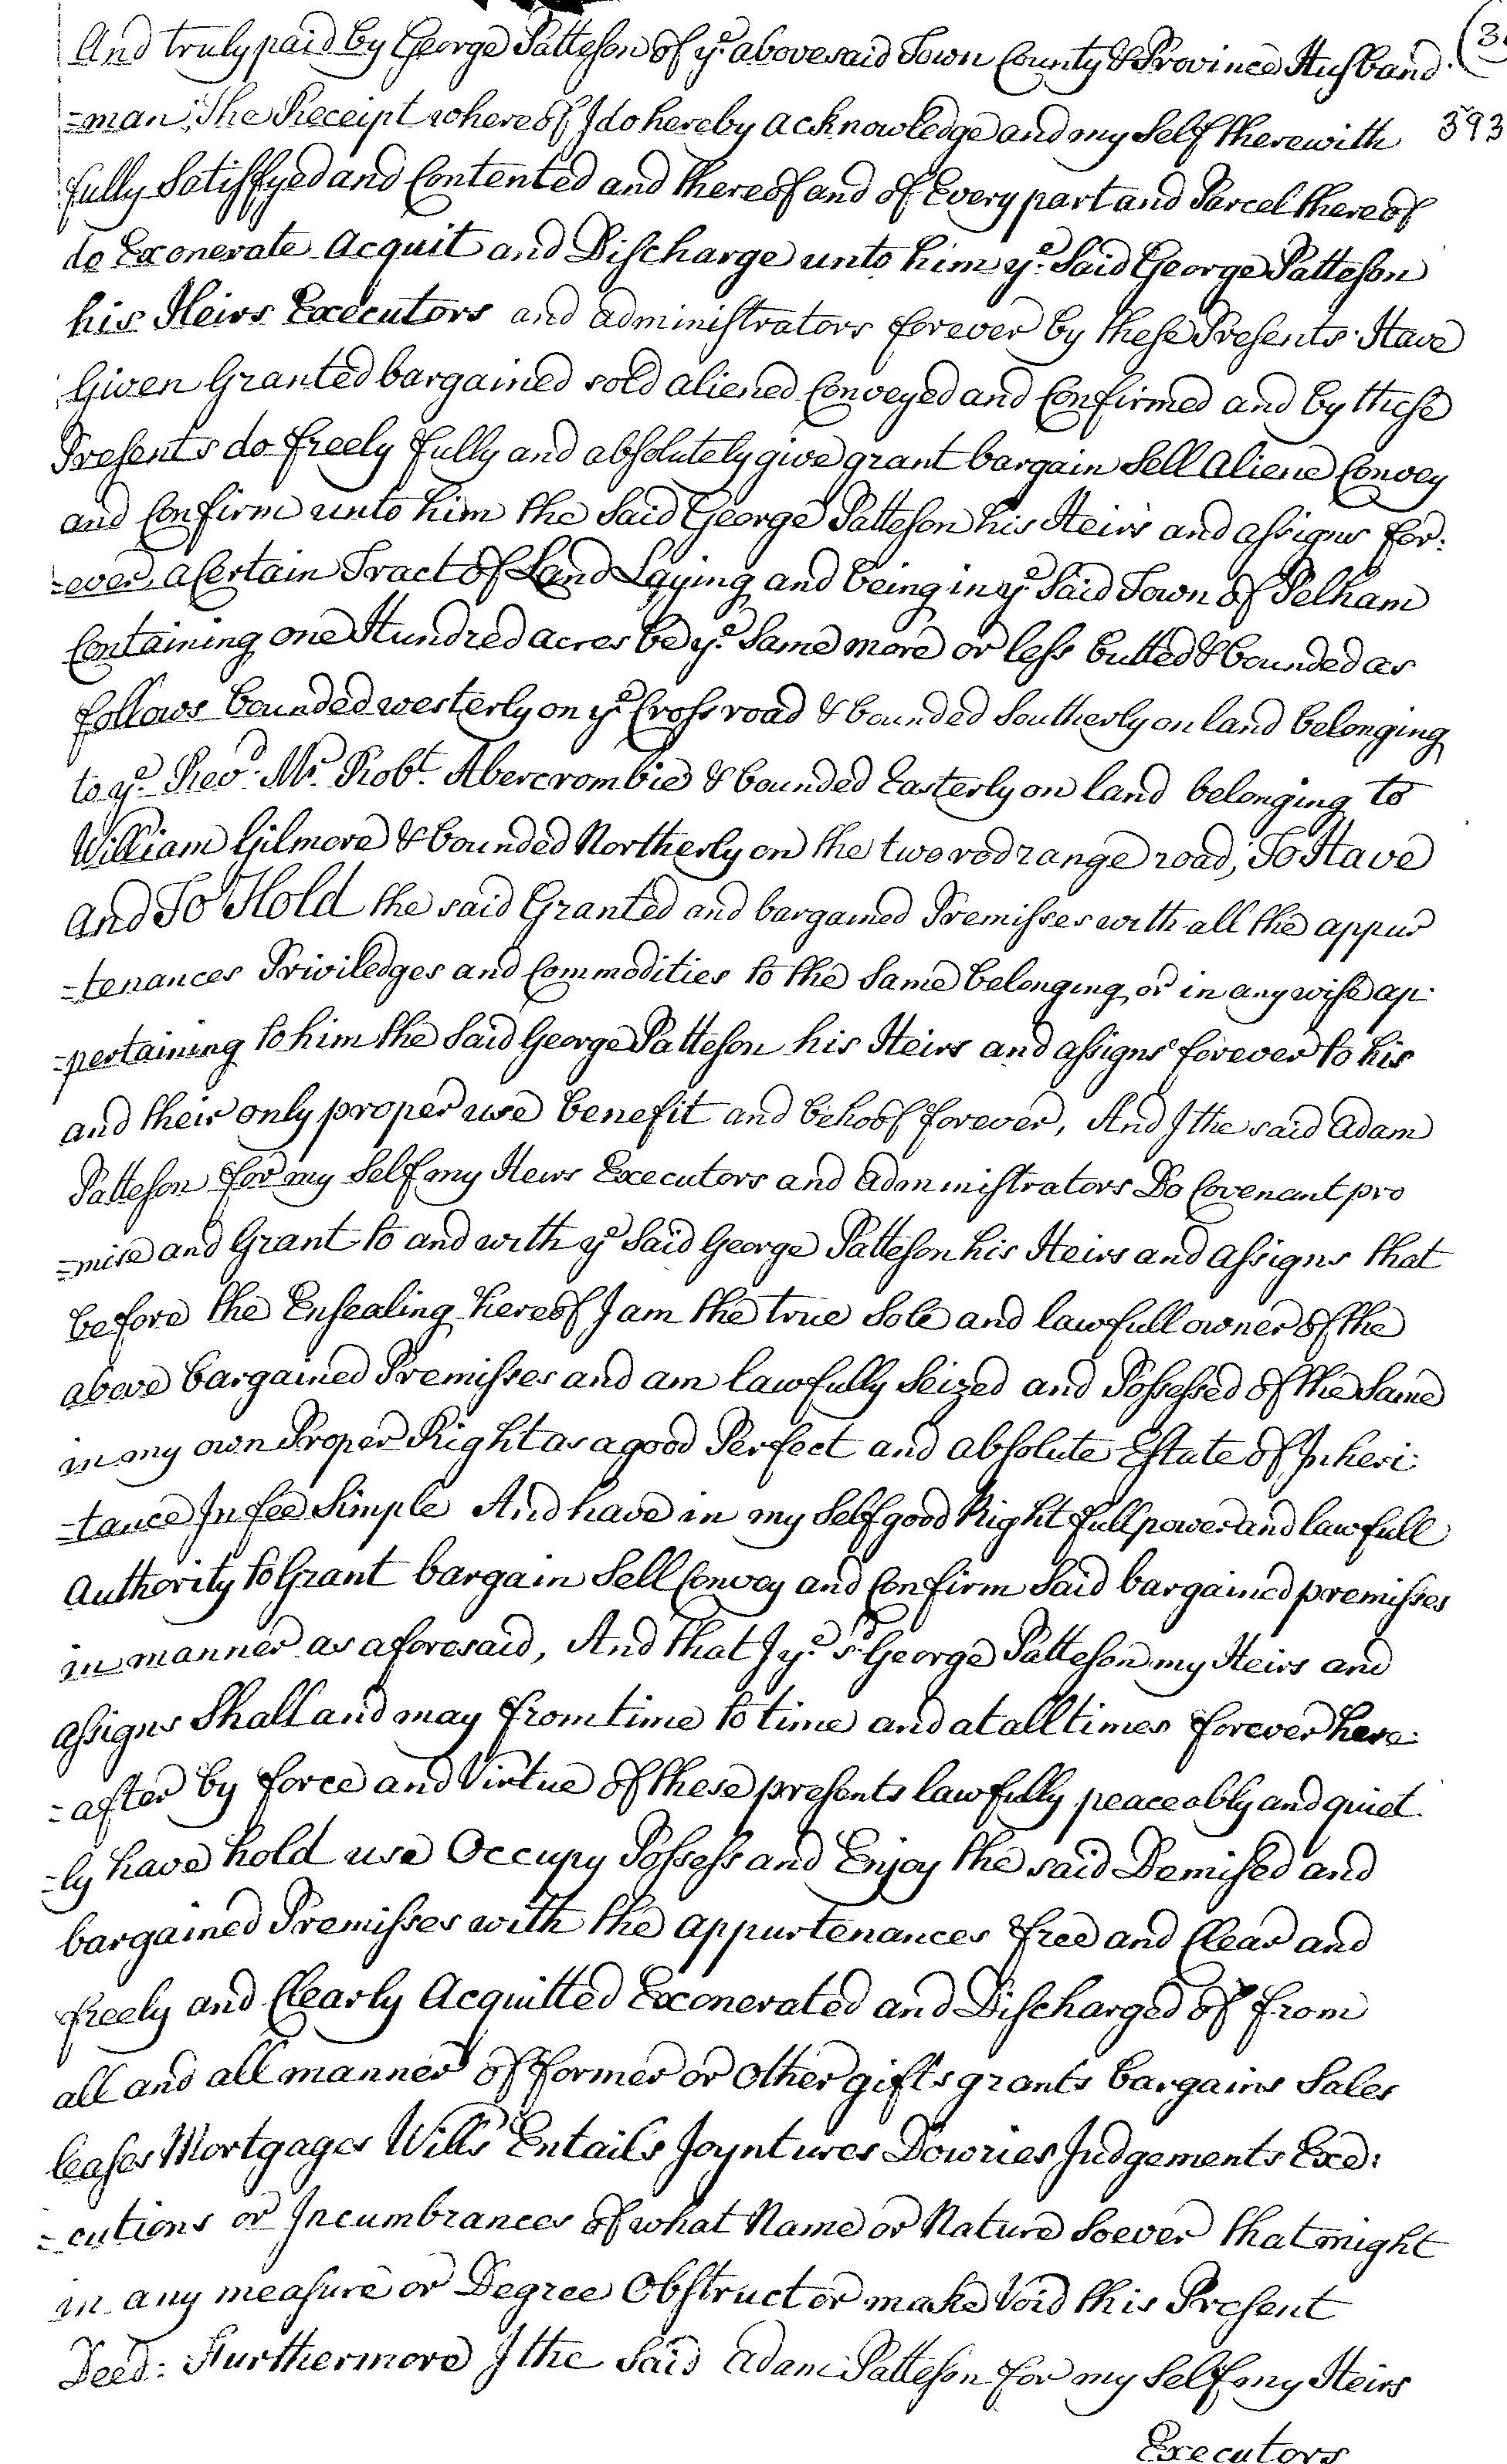 And truly paid by George Patteson of ye abovesaid Town County & Province Husband
=man; The Receipt whereof I do hereby acknowledge and my Self therewith 393
fully Satisfyed and Contented and thereof and of Every part and Parcel thereof
do Exonerate Acquit and Discharge unto him ye. Said George Patteson
his Heirs Executors and administrators forever by these Presents Have
Given Granted bargained sold aliened Conveyed and Confirmed and by these
Presents do freely fully and absolutely give grant bargain Sell Aliene Convey
and Confirm unto him the Said George Patteson his Heirs and assigns for:
=ever, a Certain Tract of Land Laying and being in ye Said Town of Pelham
Containing one Hundred acres be ye. Same more or less butted & bounded as
follows bounded westerly on ye Cross road & bounded Southerly on land belonging
to ye. Revd. Mr. Robt. Abercrombie & bounded Easterly on land belonging to
William Gilmore & bounded Northerly on the two rod range road, To Have
and To Hold the said Granted and bargained Premisses with all the appur
=tenances Priviledges and Commodities to the Same belonging or in any wise ap:
=pertaining to him the Said George Patteson his Heirs and assigns forever to his
and their only proper use benefit and behoof forever, And I the said Adam
Patteson for my Self my Heirs Executors and Administrators Do Covenant pro
=mise and Grant to and with ye Said George Patteson his Heirs and assigns that
before the Ensealing hereof I am the true Sole and lawfull owner of the
above bargained Premisses and am lawfully Seized and Possessed of the Same
in my own Proper Right as a good Perfect and absolute Estate of Inheri:
=tance In fee Simple And have in my Self good Right full power and lawfull
Authority to Grant bargain Sell Convey and Confirm Said bargained premisses
in manner as aforesaid, And that I ye. sd. George Patteson my Heirs and
assigns Shall and may from time to time and at all times forever here:
=after by force and Virtue of these presents lawfully peaceably and quiet
=ly have hold use Occupy Possess and Enjoy the said Demised and
bargained Premisses with the appurtenances free and Clear and
freely and Clearly Acquitted Exonerated and Discharged of from
all and all manner of former or other gifts grants bargains Sales
leases Mortgages Wills Entails Joyntures Dowries Judgements Exe:
=cutions or Incumbrances of what Name or Nature Soever that might
in any measure or Degree Obstruct or make Void this Present
Deed: Furthermore I the Said Adam Patteson for my Self my Heirs
Executors